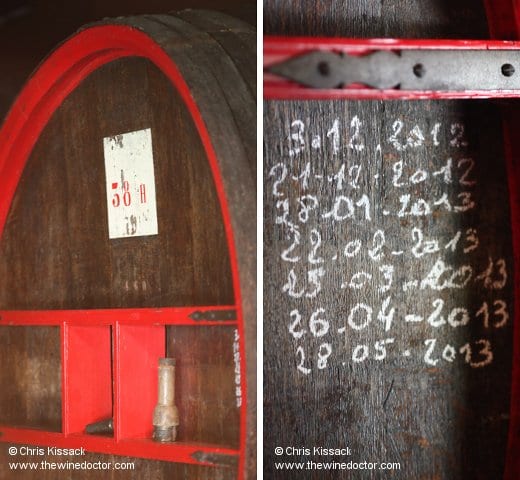 58 A
© Chris Kissack
www.thewinedoctor.com
3.12.2012
21-12-2012
28-01-2013
22.02-2013
25.03-2013
26.04-2013
28.05.2013
© Chris Kissack
www.thewinedoctor.com